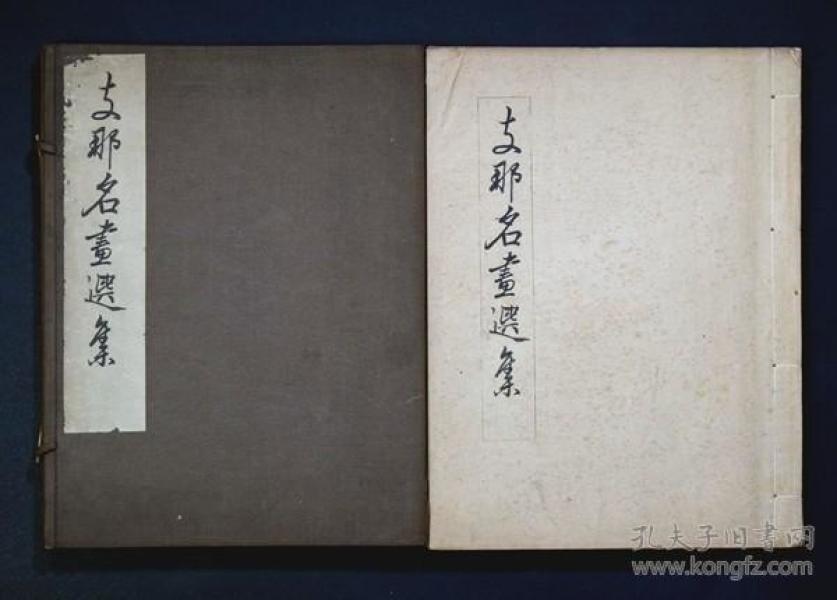 支那名畫選集
支那名畫選集
孔夫子旧书网
www.kongfz.com